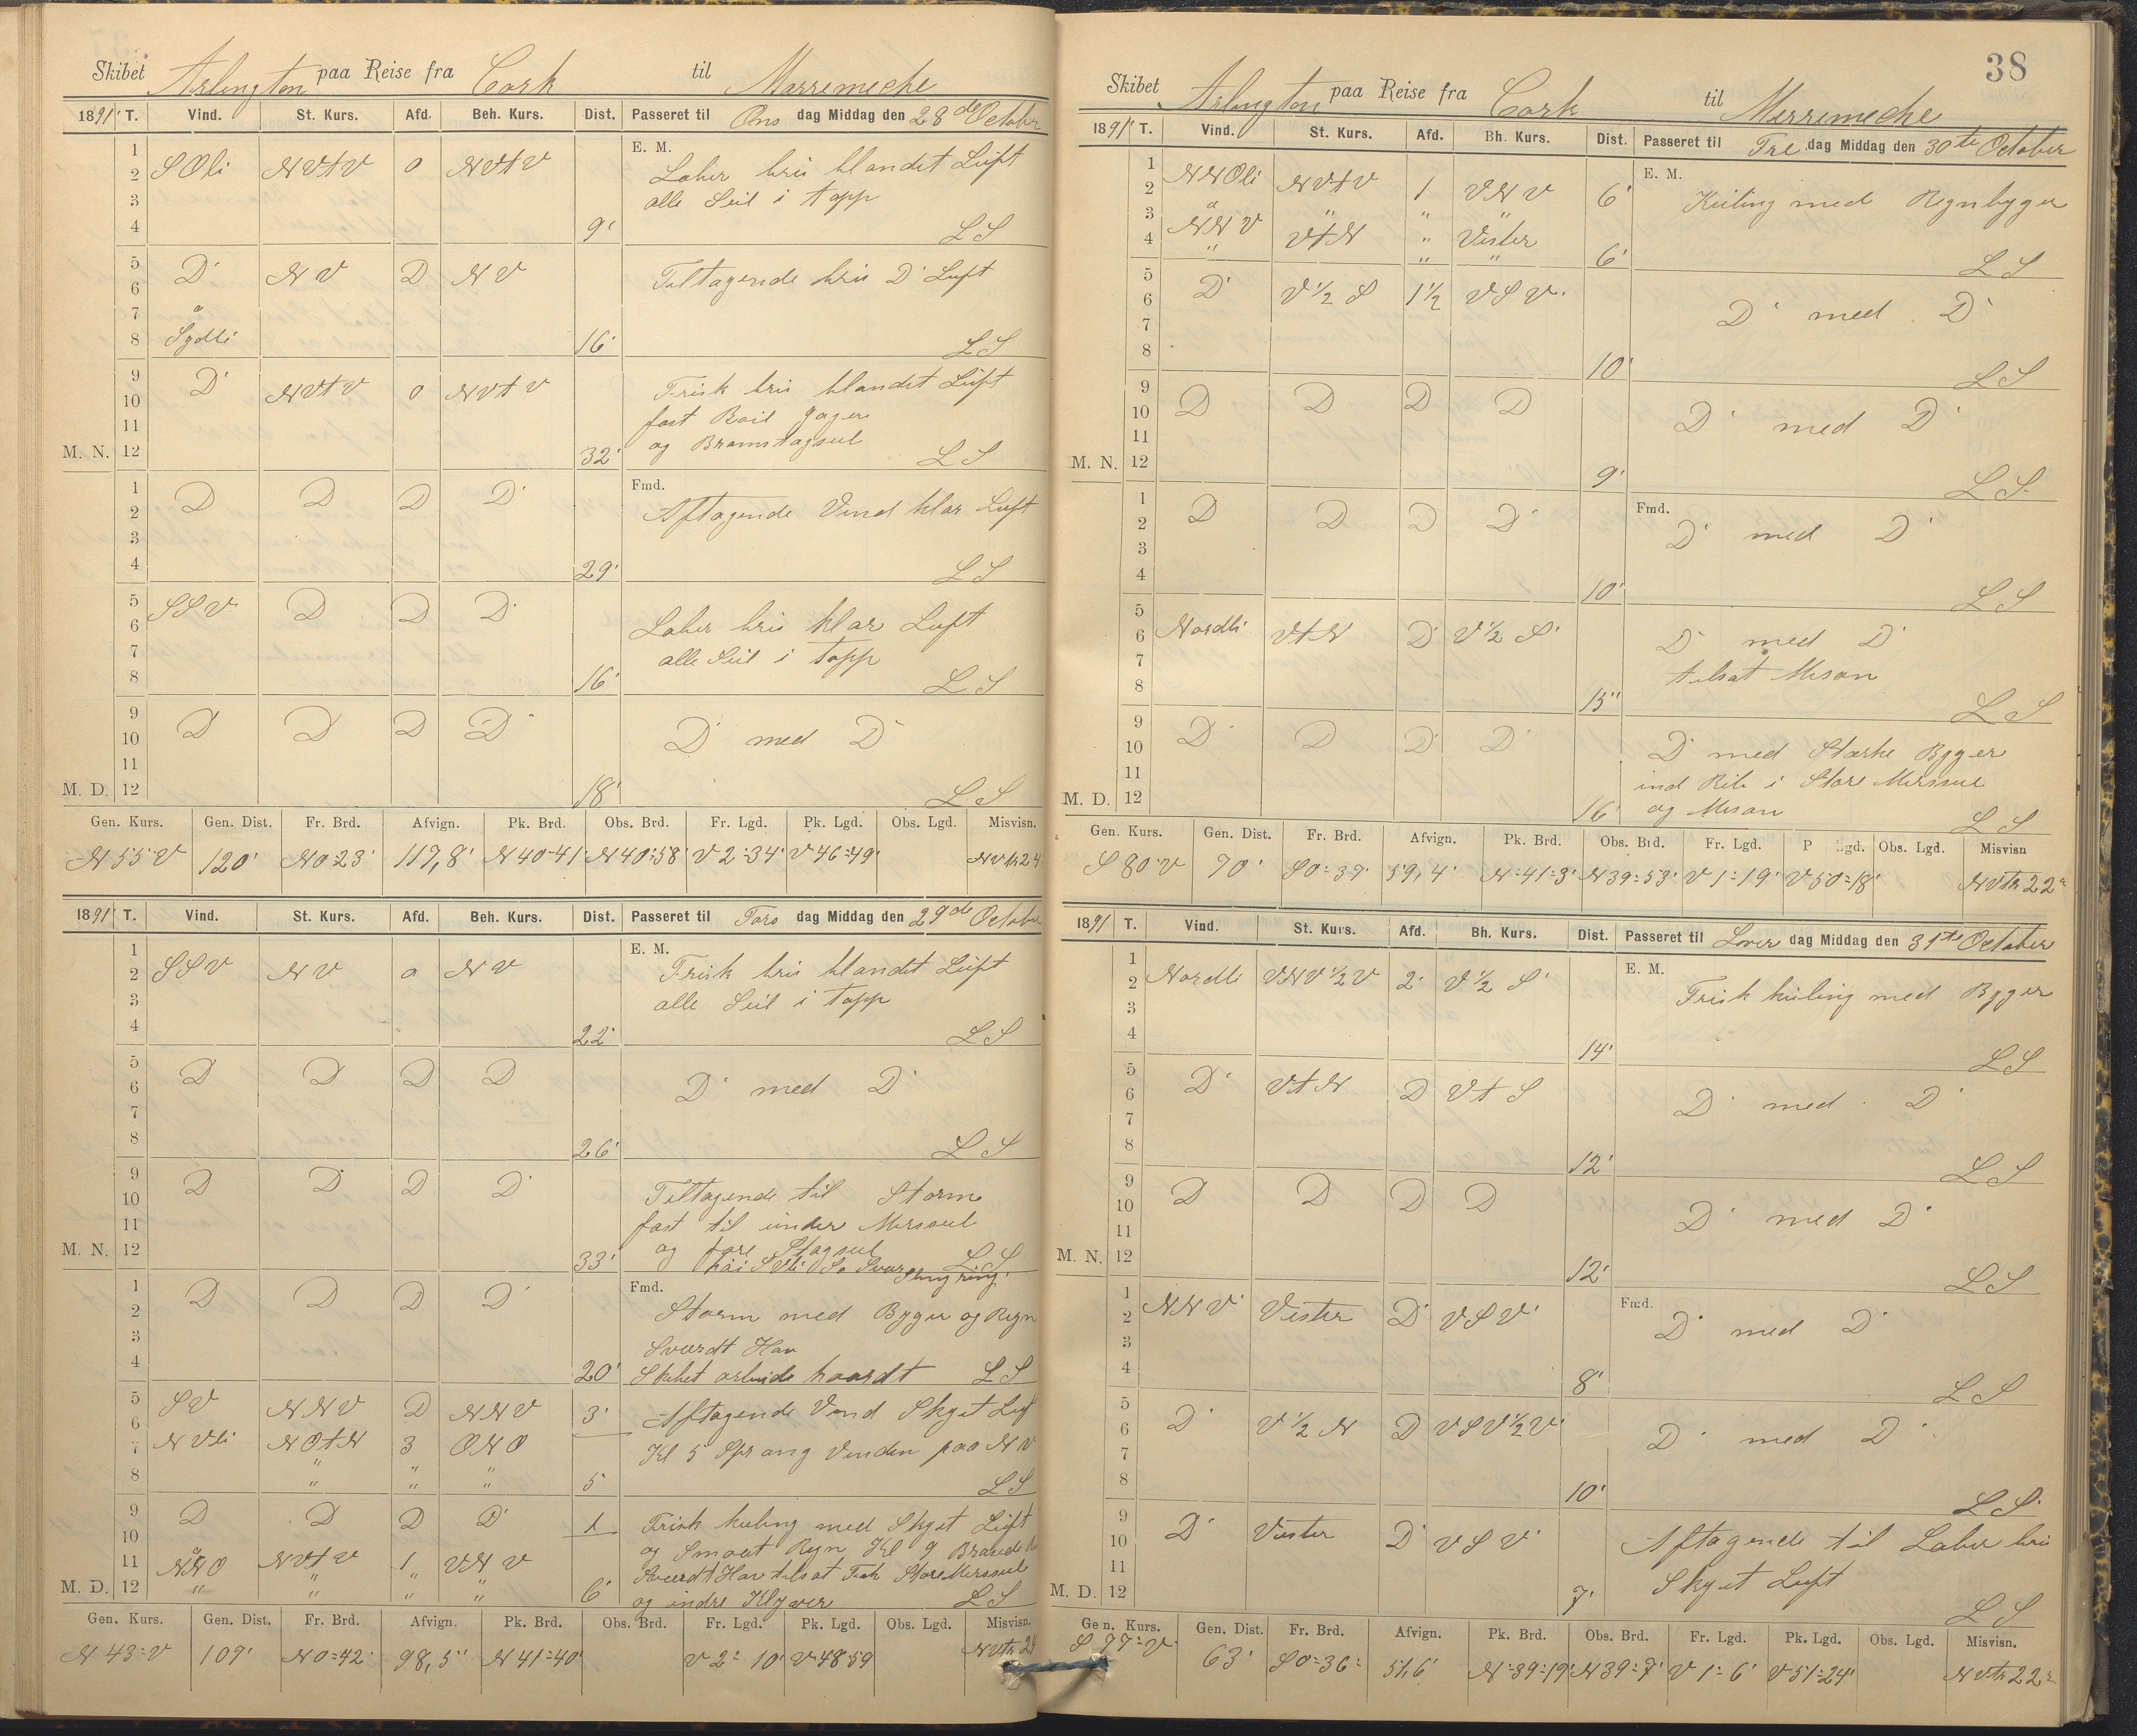 Skibet Arlington paa Reise fra Cork til Marremeche
1891 T. Vind. St. Kurs. Afd. Beh. Kurs. Dist. Passeret til Ons dag Middag den 28de October
E. M.
1
2 SOli NVtV 0 NVtV Laber bris blandet Luft
3 alle Seil i topp
4 9' LS
5 D' NV D NV Tiltagende bris D' Luft
6
7 a
8 Sydli 16' LS
9 D' NVtV 0 NVtV Frisk bris blandet Luft
10 fast Roil Jager
11 og Bramstagseil
M. N. 12 32' LS
Fmd.
1 D D D D' Aftagende Vind klar Luft
2
3
4 29' LS
5 SSV D D D' Laber bris klar Luft
6
7 alle Seil i topp
8 16' LS
9 D D D D'
10 D' med D'
11
M. D. 12 18' LS
Gen. Kurs. Gen. Dist. Fr. Brd. Afvign. Pk. Brd. Obs. Brd. Fr. Lgd. Pk. Lgd. Obs. Lgd. Misvisn.
N 55° V 120' N 0°23' 117,8' N 40°41' N 40°58' V 2°34' V 46°49' NVtr 24
1891 T. Vind. St. Kurs. Afd. Beh. Kurs. Dist. Passeret til Tors dag Middag den 29de October
E. M.
1
2 SSV NV 0 NV Frisk bris blandet Luft
3 alle Seil i topp
4 22' LS
5 D D D D
6 D' med D'
7
8 26' LS
9 D D D D' Tiltagende til Storm
10
11 fast til under Mersseil
M. N. 12 33' og fore Stagseil LS
Slingring
Fmd.
1 D D D D'
2 Storm med Byger og Regn
3 Sværdt Hav
4 20' Skibet arbeide haardt LS
5 SV NNV D NNV 3' Aftagende Vind Skyet Luf
6
7 NVli NOtN 3 ONO Kl 5 Sprang Vinden paa NV
8 " " " 5' LS
9 D D D D' 1 Frisk kuling med Skyet Luft
10 a og Smaat Regn Kl 9 Brasede
11 NNO NVtV 1 VNV Sværdt Hav tilsat Fok Store Mersseil
M. D. 12 " " " " 6' og indre Klyver LS
Gen. Kurs. Gen. Dist. Fr. Brd. Afvign. Pk. Brd. Obs. Brd. Fr. Lgd. Pk. Lgd. Obs. Lgd. Misvisn.
N 43° V 109' N 0°42' 98,5' N 41°40' V 2° 10' V 48°59 NVtr 24
38
Skibet Arlington paa Reise fra Cork til Merremeche
1891 T. Vind. St. Kurs. Afd. Bh. Kurs. Dist. Passeret til Fre dag Middag den 30te October
E. M.
1
2 NNOli NVtV 1 VNV 6' Kuling med Regnbyger
3 a " " "
4 NNV VtN " Vester
" " " 6' LS
5 D' V 1/2 S 1 1/2 VSV'
6 D' med D'
7
8 10' LS
9 D D D D
10 D' med D'
11
M. N. 12 9' LS
Fmd.
1 D D D D'
2 D' med D'
3
4 10' LS
5
6 Nordli VtN D' V 1/2 S' D' med D'
7 tilsat Mesan
8 15' LS
9 D' D D' D'
10 D' med Stærke Byger
11 ind Reb i Store Mersseil
M. D. 12 16' og Mesan LS
Gen. Kurs. Gen. Dist. Fr. Brd. Afvign. Pk. Brd. Obs. Brd. Fr. Lgd. P Lgd. Obs. Lgd. Misvisn
S 80° V 70' S 0°39' 59,4' N°41°3' N 39°53' V 1°19' V 50°18' NVtr 22°
1891 T. Vind. St. Kurs. Afd. Bh. Kurs. Dist. Passeret til Lover dag Middag den 31te October
E. M.
1
2 Nordli VNV 1/2 V 2' V 1/2 S' Frisk kuling med Byger
3
4 14' LS
5 D' VtN D VtS
6 D' med D'
7
8 12' LS
9 D D D D
10 D' med D'
11
M. N. 12 12' LS
Fmd.
1
2 NNV' Vester D' VSV' D' med D'
3
4 8' LS
5
6 D' V 1/2 N D VSV 1/2 V' D' med D'
7
8 10' LS
9
10 D' Vester D' VSV' Aftagende til Laber bris
11 Skyet Luft
M. D. 12 7' LS
Gen. Kurs. Gen. Dist. Fr. Brd. Afvign. Pk. Brd. Obs. Brd. Fr. Lgd. Pk. Lgd. Obs. Lgd. Misvisn.
S 77° V' 63' S 0°36° 51,6' N°39°19' N 39°7' V 1° 6' V 51°24' NVtr 22°